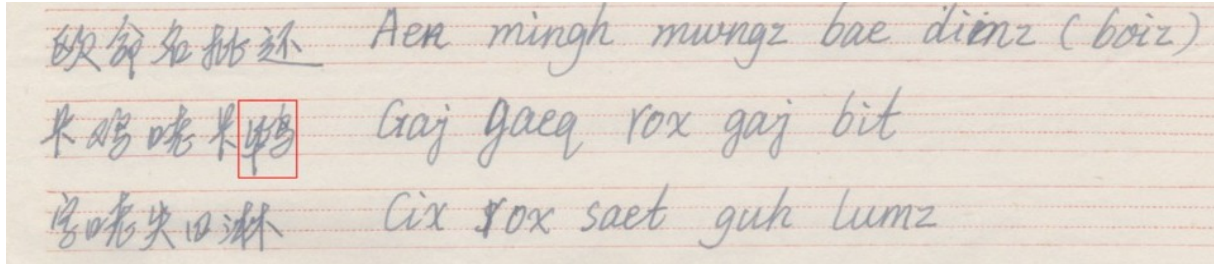 欧命名批还 Aeu mingh mwngz bae dienz (boiz)
卡鸡哓卡鸭 Gaj gaeq rox gaj bit
哓失淋 Cix rox saet guh lumz